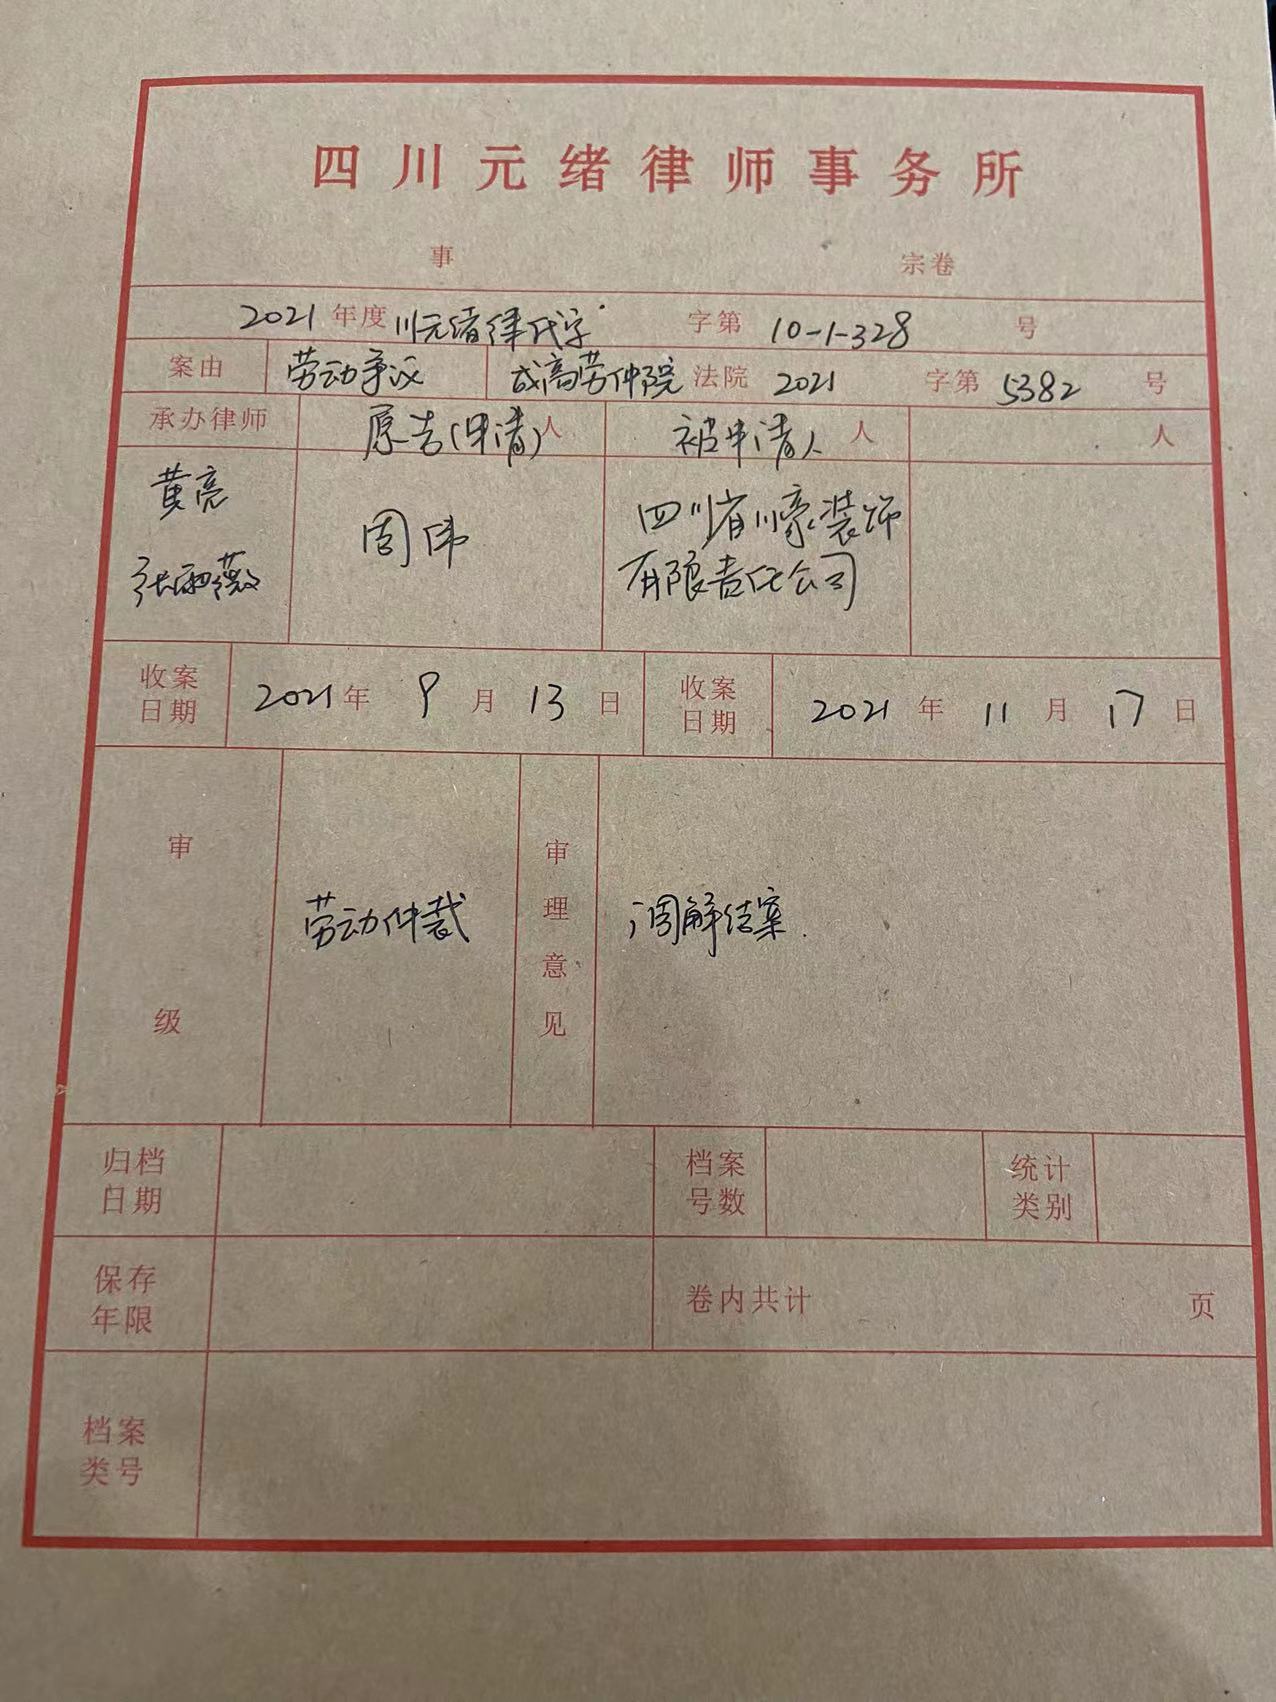 四川元绪律师事务所
事 宗卷
2021 年度 川元绪律代字 字第 10-1-328 号
案由 劳动争议 成高劳仲院 法院 2021 字第 5382 号
承办律师 原告(申请)人 被申请人 人 人
黄亮
张雨薇
周伟
四川省川豪装饰
有限责任公司
收案
日期
2021 年 9 月 13 日
收案
日期
2021 年 11 月 17 日
审
级
劳动仲裁
审
理
意
见
调解结案.
归档
日期
档案
号数
统计
类别
保存
年限
卷内共计 页
档案
类号